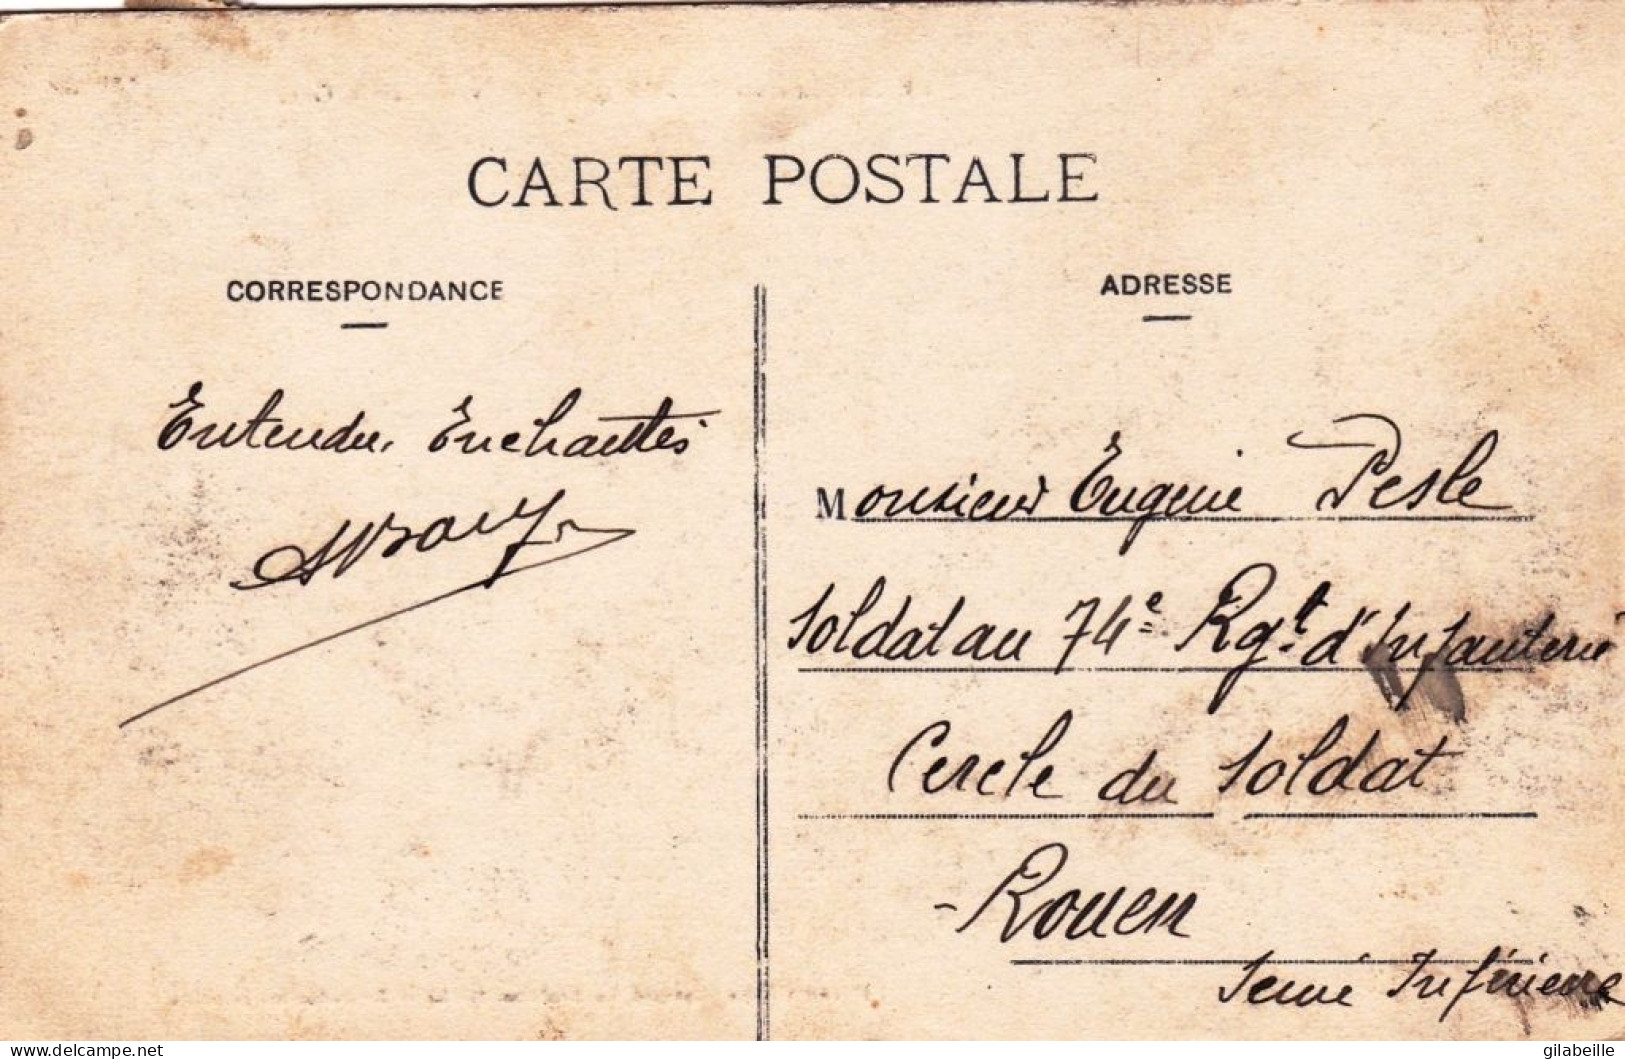 CARTE POSTALE
CORRESPONDANCE
ADRESSE
Entendu, Enchantés
Monsieur Eugenie Pesle
Soldat au 74e Rgt. d'Infanterie
Cercle du Soldat
- Rouen
Seine Inférieure
www.delcampe.net
gilabeille